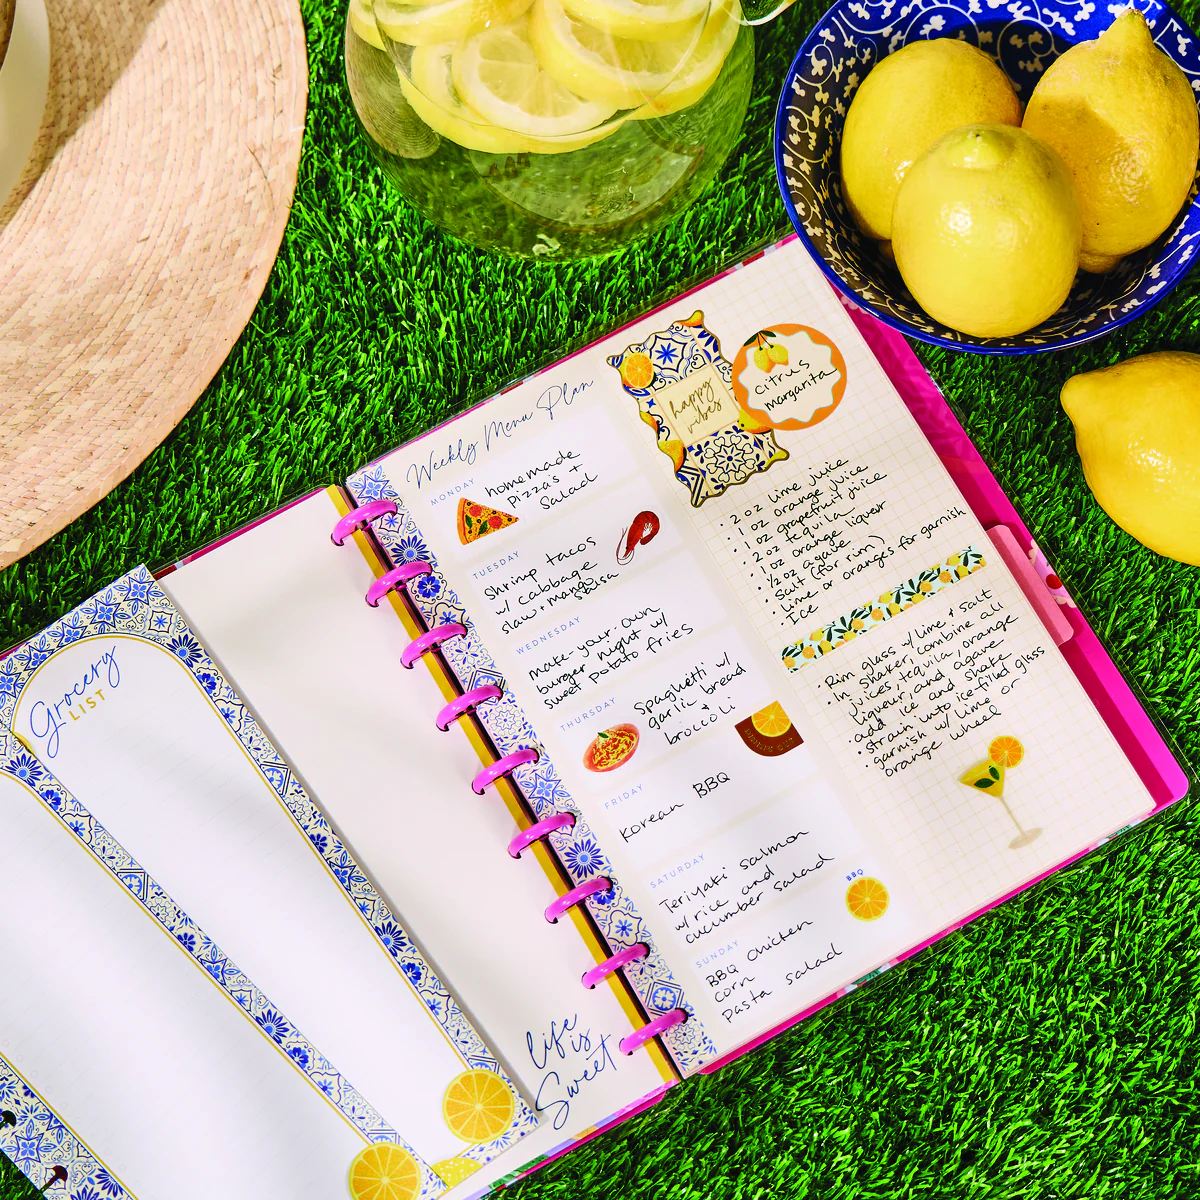 Grocery
LIST
life
is
Sweet
Weekly Menu Plan
MONDAY
homemade
pizza's +
Salad
TUESDAY
Shrimp tacos
w/ cabbage
slaw + mango
salsa
WEDNESDAY
make-your-own
burger night w/
sweet potato fries
THURSDAY
spaghetti w/
garlic bread
+
broccoli
FRIDAY
Korean BBQ
SATURDAY
Teriyaki salmon
w/ rice and
cucumber salad
SUNDAY
BBQ chicken
corn
pasta salad
BBQ
happy
vibes
citrus
margarita
• 2 oz lime juice
• 1 oz orange juice
• 1 oz grapefruit juice
• 2 oz tequila
• 1 oz orange liqueur
• 1/2 oz agave
• Salt (for rim)
• Lime or oranges for garnish
• Ice
• Rim glass w/ lime + salt
• In shaker, combine all
juices, tequila, orange
liqueur, and agave
• add ice and shake
• strain into ice-filled glass
• garnish w/ lime or
orange wheel